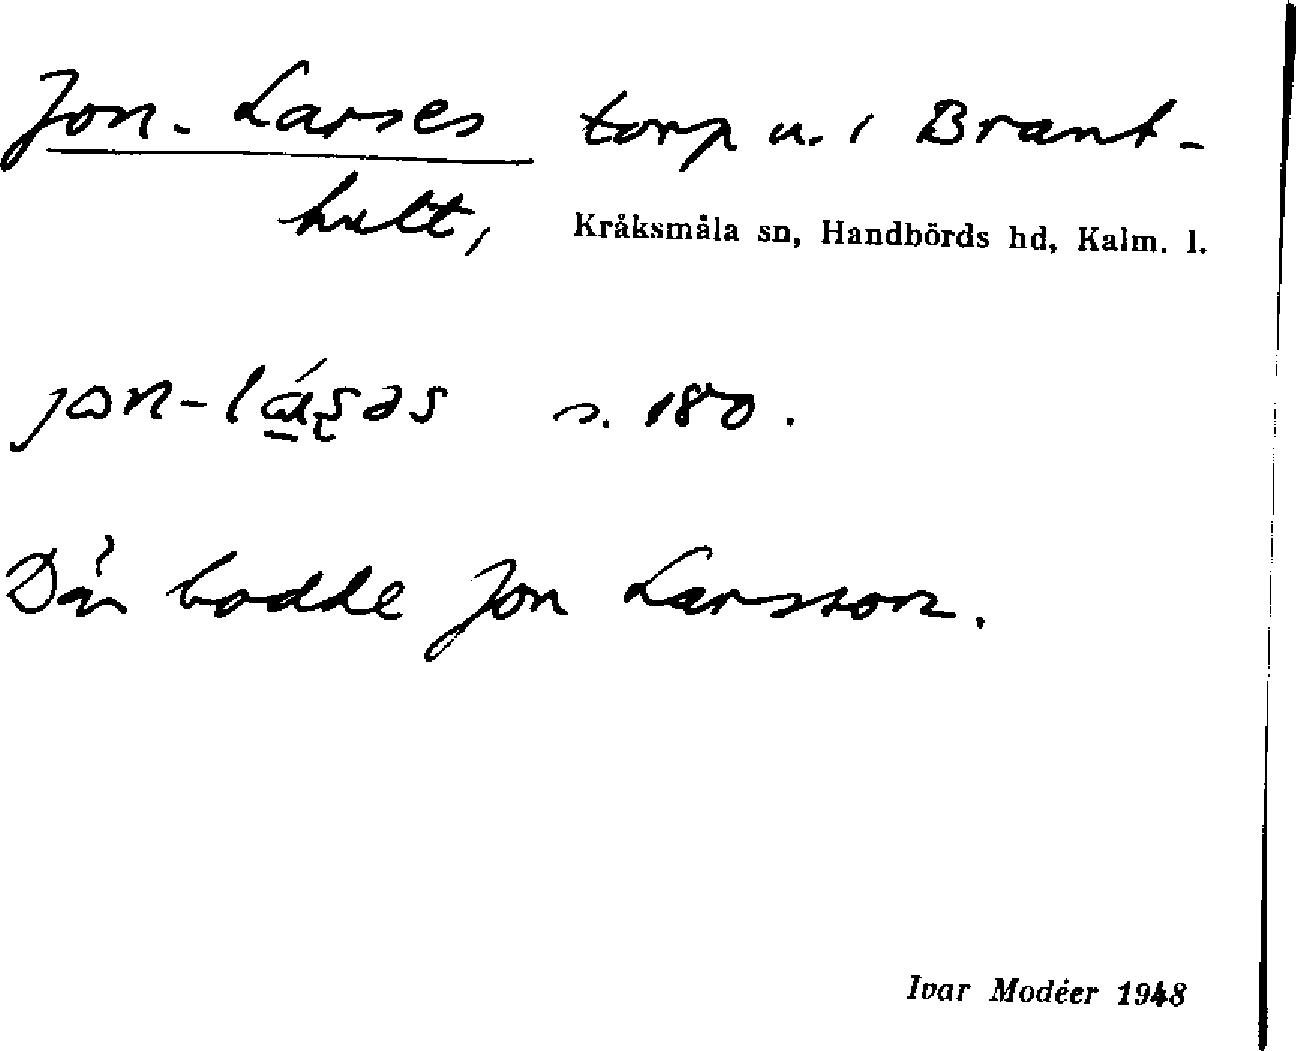 Jon-Larses torp u. i Brant-
hult, Kråksmåla sn, Handbörds hd, Kalm. l.
s. 180.
Där bodde Jon Larsson.
Ivar Modéer 1948